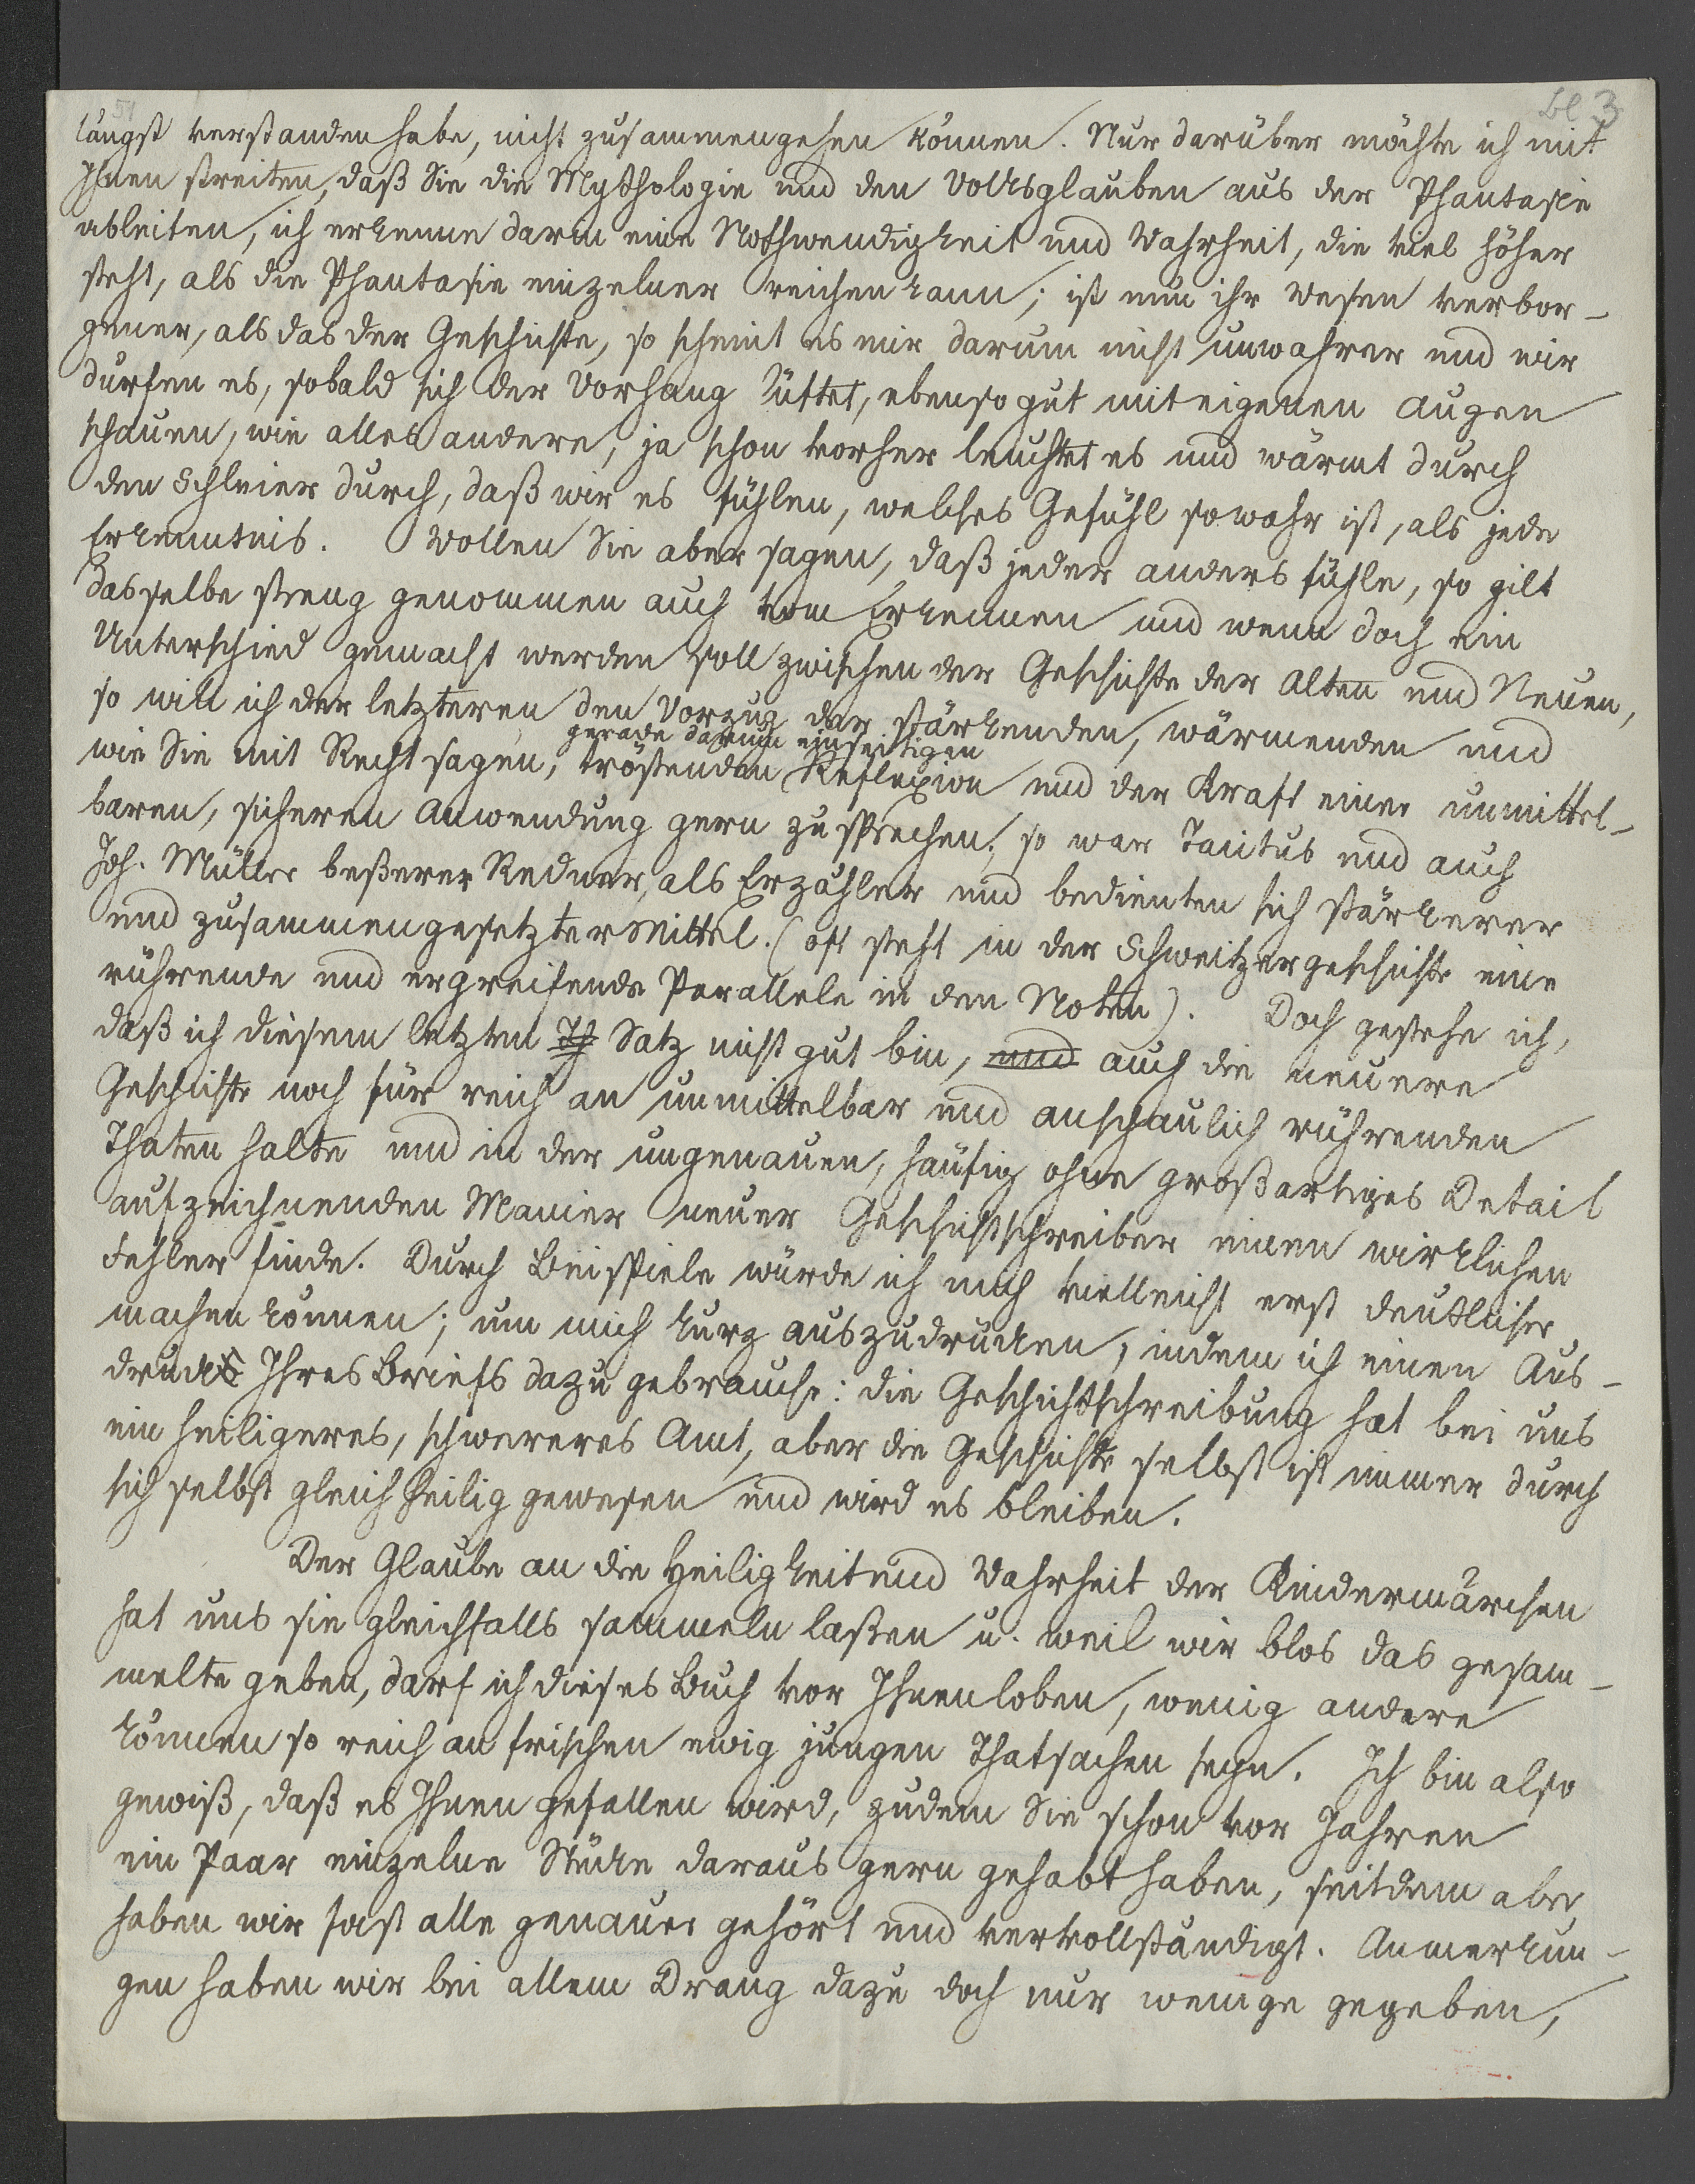 51
bl 3
längst verstanden habe, nicht zusammengehen können. Nur darüber möchte ich mit
Ihnen streiten, daß Sie die Mythologie und den Volksglauben aus der Phantasie
ableiten, ich erkenne darin eine Nothwendigkeit und Wahrheit, die viel höher
steht, als die Phantasie einzelner reichen kann; ist nun ihr Wesen verbor-
gener, als das der Geschichte, so scheint es mir darum nicht unwahrer und wir
durfen es, sobald sich der Vorhang lüftet, ebenso gut mit eigenen Augen
schauen, wie alles andere, ja schon vorher leuchtet es und wärmt durch
den Schleier durch, daß wir es fühlen, welches Gefühl so wahr ist, als jede
Erkenntnis. Wollen Sie aber sagen, daß jeder anders fühle, so gilt
dasselbe streng genommen auch vom Erkennen und wenn doch ein
Unterschied gemacht werden soll zwischen der Geschichte der Alten und Neuen,
so will ich der letzteren den Vorzug der stärkenden, wärmenden und
gerade darum einseitigen
wie Sie mit Recht sagen, tröstenden Reflexion und der Kraft einer unmittel-
baren, sicheren Anwendung gern zusprechen; so war Tacitus und auch
Joh. Müller beßerer Redner, als Erzähler und bedienten sich stärkerer
und zusammengesetzter Mittel. (oft steht in der Schweitzergeschichte eine
rührende und ergreifende Parallele in den Noten). Doch gestehe ich,
daß ich diesem letzten Th Satz nicht gut bin, und auch die neuere
Geschichte noch für reich an unmittelbar und anschaulich rührenden
Thaten halte und in der ungenauen, häufig ohne großartiges Detail
aufzeichnenden Manier neuer Geschichtschreiber einen wirklichen
Fehler finde. Durch Beispiele würde ich mich vielleicht erst deutlicher
machen können; um mich kurz auszudrücken, indem ich einen Aus-
druck Ihres Briefs dazu gebrauche: die Geschichtschreibung hat bei uns
ein heiligeres, schwereres Amt, aber die Geschichte selbst ist immer durch
sich selbst gleich heilig gewesen und wird es bleiben.
Der Glaube an die Heiligkeit und Wahrheit der Kindermärchen
hat uns sie gleichfalls sammeln laßen u. weil wir blos das gesam-
melte geben, darf ich dieses Buch vor Ihnen loben, wenig andere
können so reich an frischen ewig jungen Thatsachen seyn. Ich bin also
gewiß, daß es Ihnen gefallen wird, zudem Sie schon vor Jahren
ein Paar einzelne Stücke daraus gern gehabt haben, seitdem aber
haben wir fast alle genauer gehört und vervollständigt. Anmerkun-
gen haben wir bei allem Drang dazu doch nur wenige gegeben,